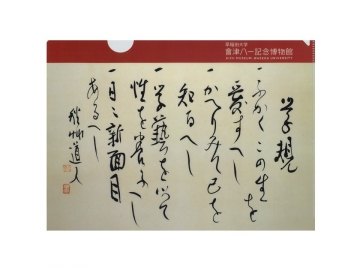 早稲田大学
會津八一記念博物館
AIZU MUSEUM WASEDA UNIVERSITY
学規
一ふかくこの生を
愛すへし
一かへりみて己を
知るへし
一学藝を以て
性を養ふへし
一日々新面目
あるへし
秋艸道人